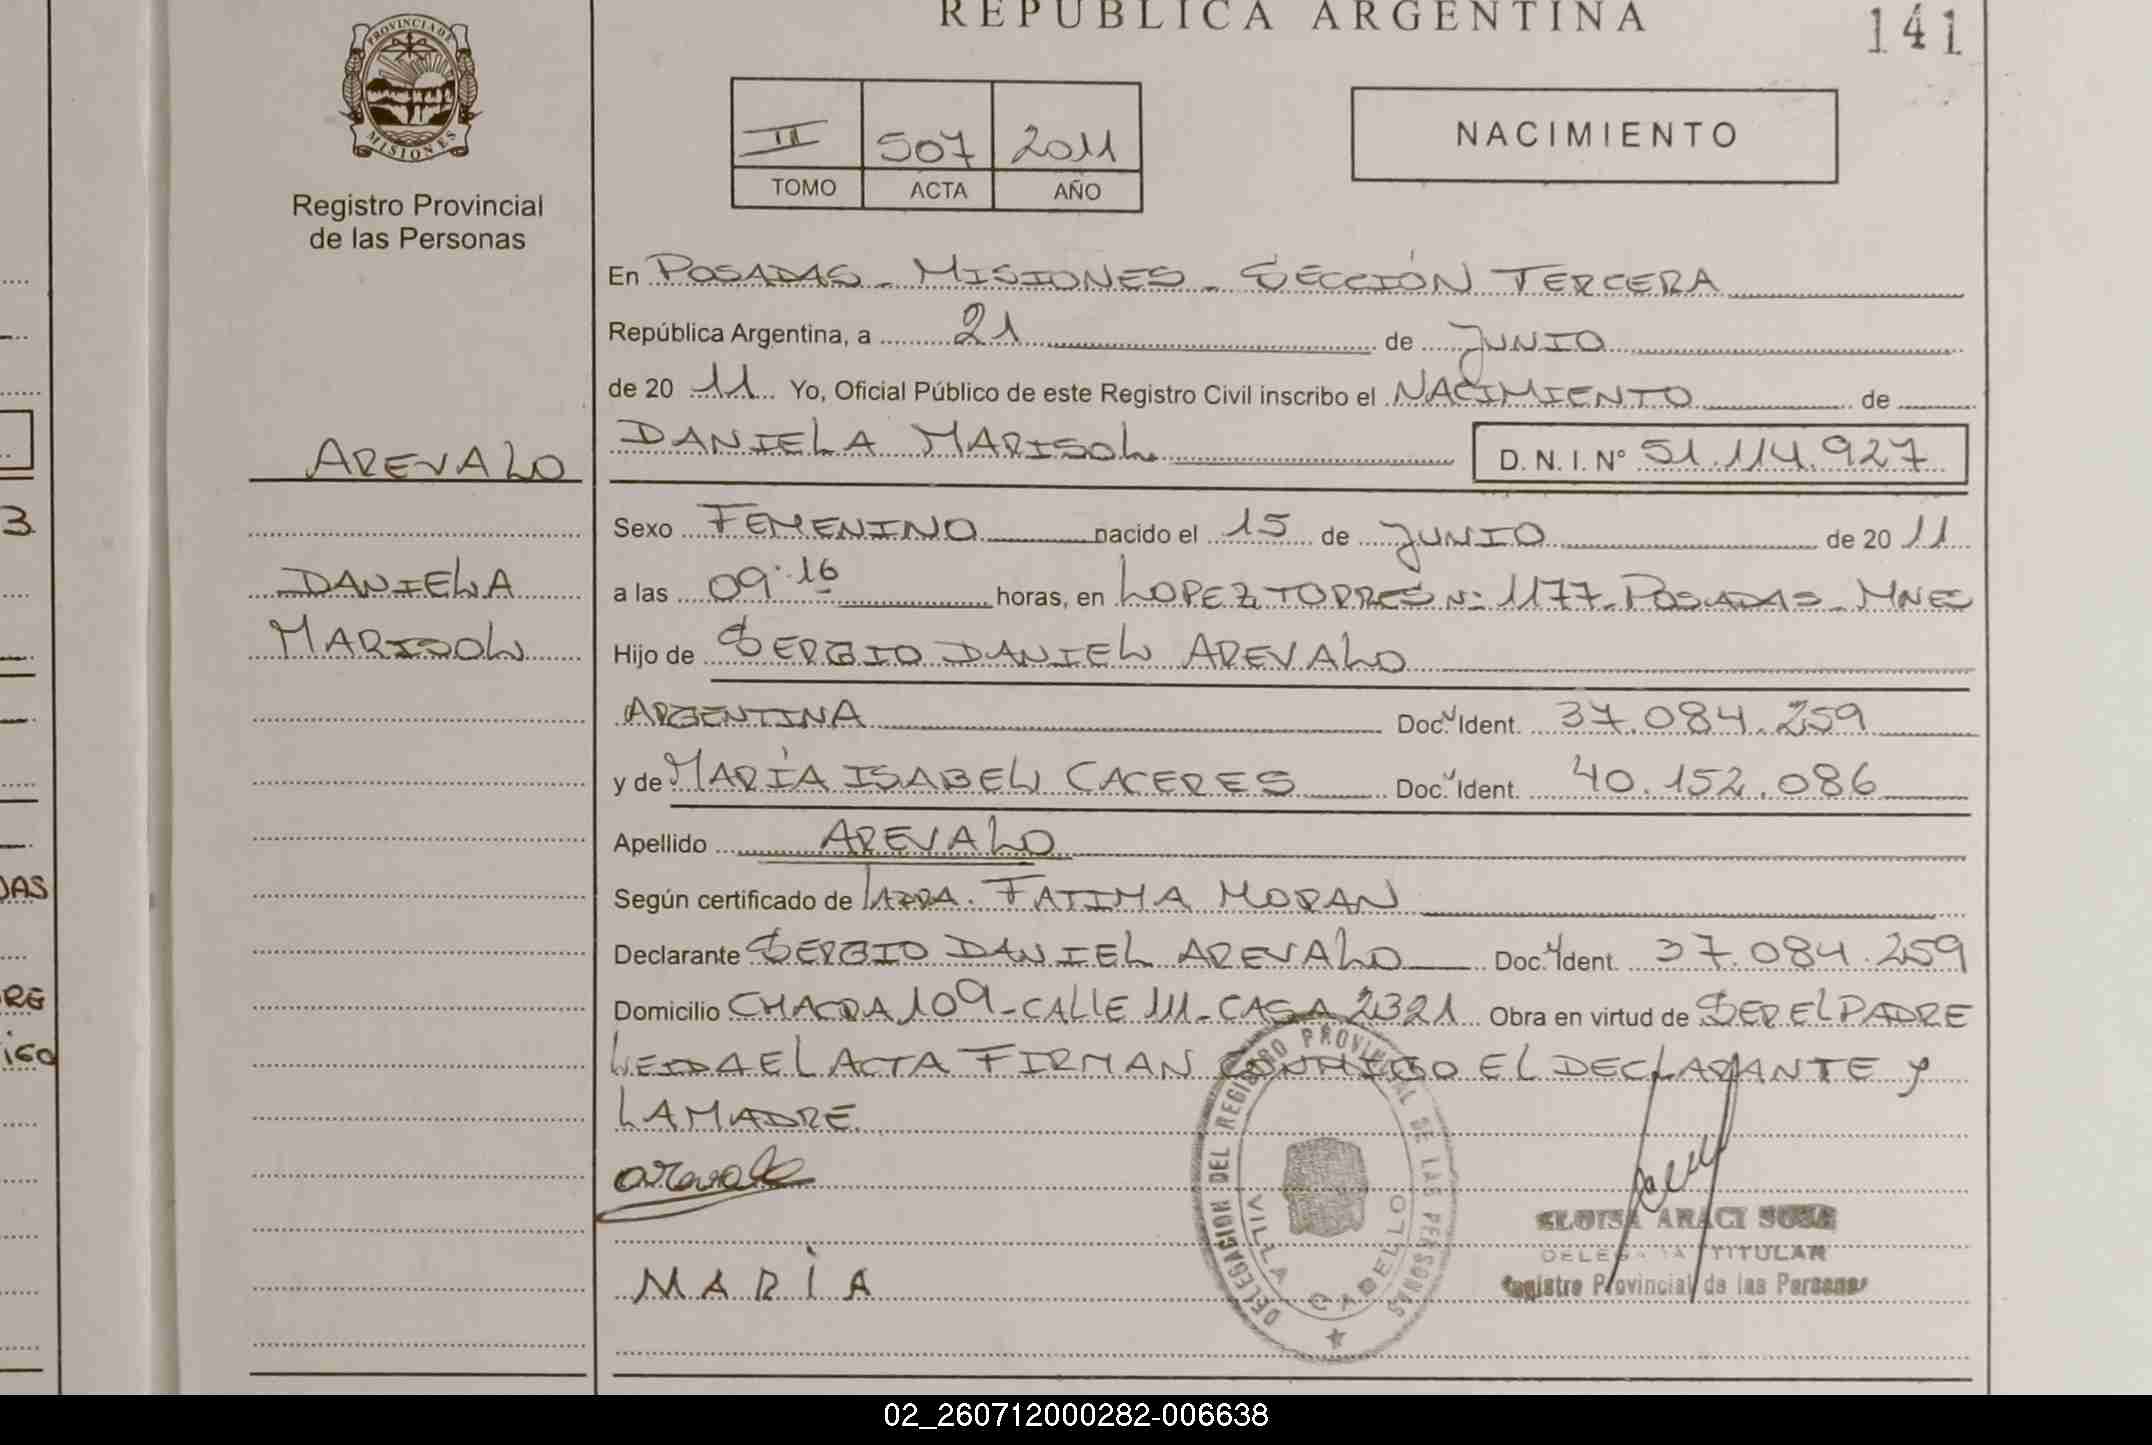 REPUBLICA ARGENTINA
141
PROVINCIA DE
MISIONES
Registro Provincial
de las Personas
II 507 2011
TOMO ACTA AÑO
NACIMIENTO
En POSADAS - MISIONES - SECCIÓN TERCERA
República Argentina, a 21 de JUNIO
de 20 11 Yo, Oficial Público de este Registro Civil inscribo el NACIMIENTO de
AREVALO
DANIELA MARISOL D. N. I. N° 51.114.927
Sexo FEMENINO nacido el 15 de JUNIO de 20 11
DANIELA
MARISOL
a las 09:16 horas, en LOPEZ TORRES Nº 1177 - POSADAS - MNES
Hijo de SERGIO DANIEL AREVALO
ARGENTINA Doc. Ident. 37.084.259
y de MARÍA ISABEL CACERES Doc. Ident. 40.152.086
Apellido AREVALO
Según certificado de FATIMA MORAN
Declarante SERGIO DANIEL AREVALO Doc. Ident. 37.084.259
Domicilio CHACRA 109 - CALLE 111 - CASA 2321 Obra en virtud de SER EL PADRE
LEIDA EL ACTA FIRMAN CONMIGO EL DECLARANTE y
LA MADRE.
arevalo
MARÍA
DELEGACION DEL REGISTRO PROVINCIAL DE LAS PERSONAS
VILLA CABELLO
ELOISA ARACI SOSA
DELEGADA TITULAR
Registro Provincial de las Personas
3
DAS
RE
02_260712000282-006638